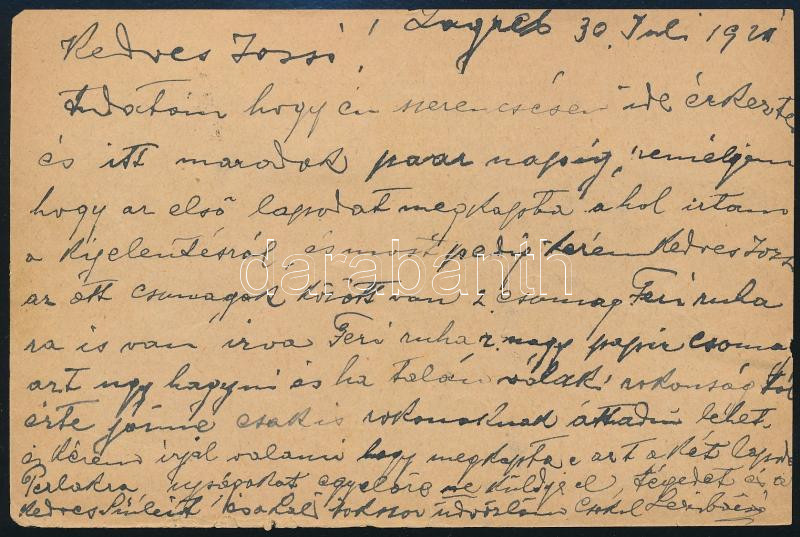 Zagreb 30. Juli 1921
Kedves Jozsi!
tudatom hogy én szerencsésen ide érkezte
és itt maradok paar napig, remélyem
hogy az első lapodat megkapta ahol irtam
a kijelentésről, és most pedig kérem kedves Jozs
az ött csomagok között van 2 csomag Feri ruha
ra is van irva Feri ruha 2. nagy papir csoma
azt ugy hagyni és ha talán valaki rokonság tól
érte jönne csakis rokonoknak áttadni léhet
és kérem irjál valami hogy megkapta e azt a két lapod
Perlakra ujságokat egyelőre ne küldye el tégedet és a
kedves Szüleit és sokszor üdvözlöm csokol
darabanth